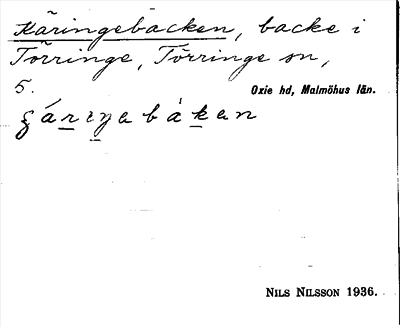 Käringebacken, backe i
Törringe, Törringe sn,
5. Oxie hd, Malmöhus län.
NILS NILSSON 1936.